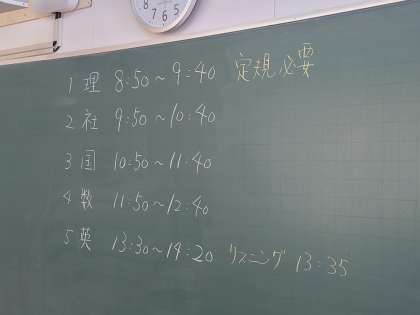 8 7 6 5
1 理 8:50～9:40 定規必要
2 社 9:50～10:40
3 国 10:50～11:40
4 数 11:50～12:40
5 英 13:30～14:20 リスニング 13:35